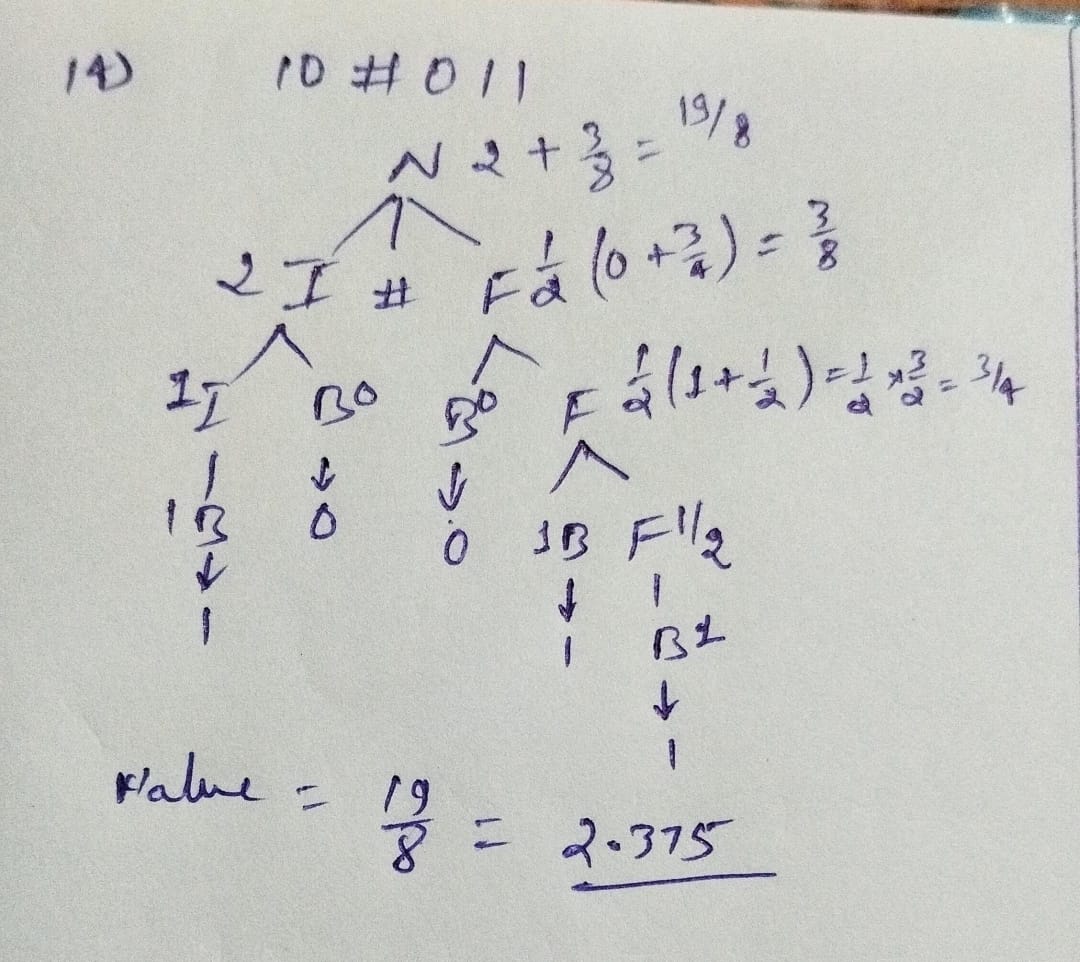 14) 10 # 011
N 2 + 3/8 = 19/8
2 I # F 1/2 (0 + 3/4) = 3/8
1 I B 0 B 0 F 1/2 (1 + 1/2) = 1/2 × 3/2 = 3/4
1 B ↓ 0 ↓ 0 1 B F 1/2
↓ 1 ↓ 1 B 1
↓
1
Value = 19/8 = 2.375